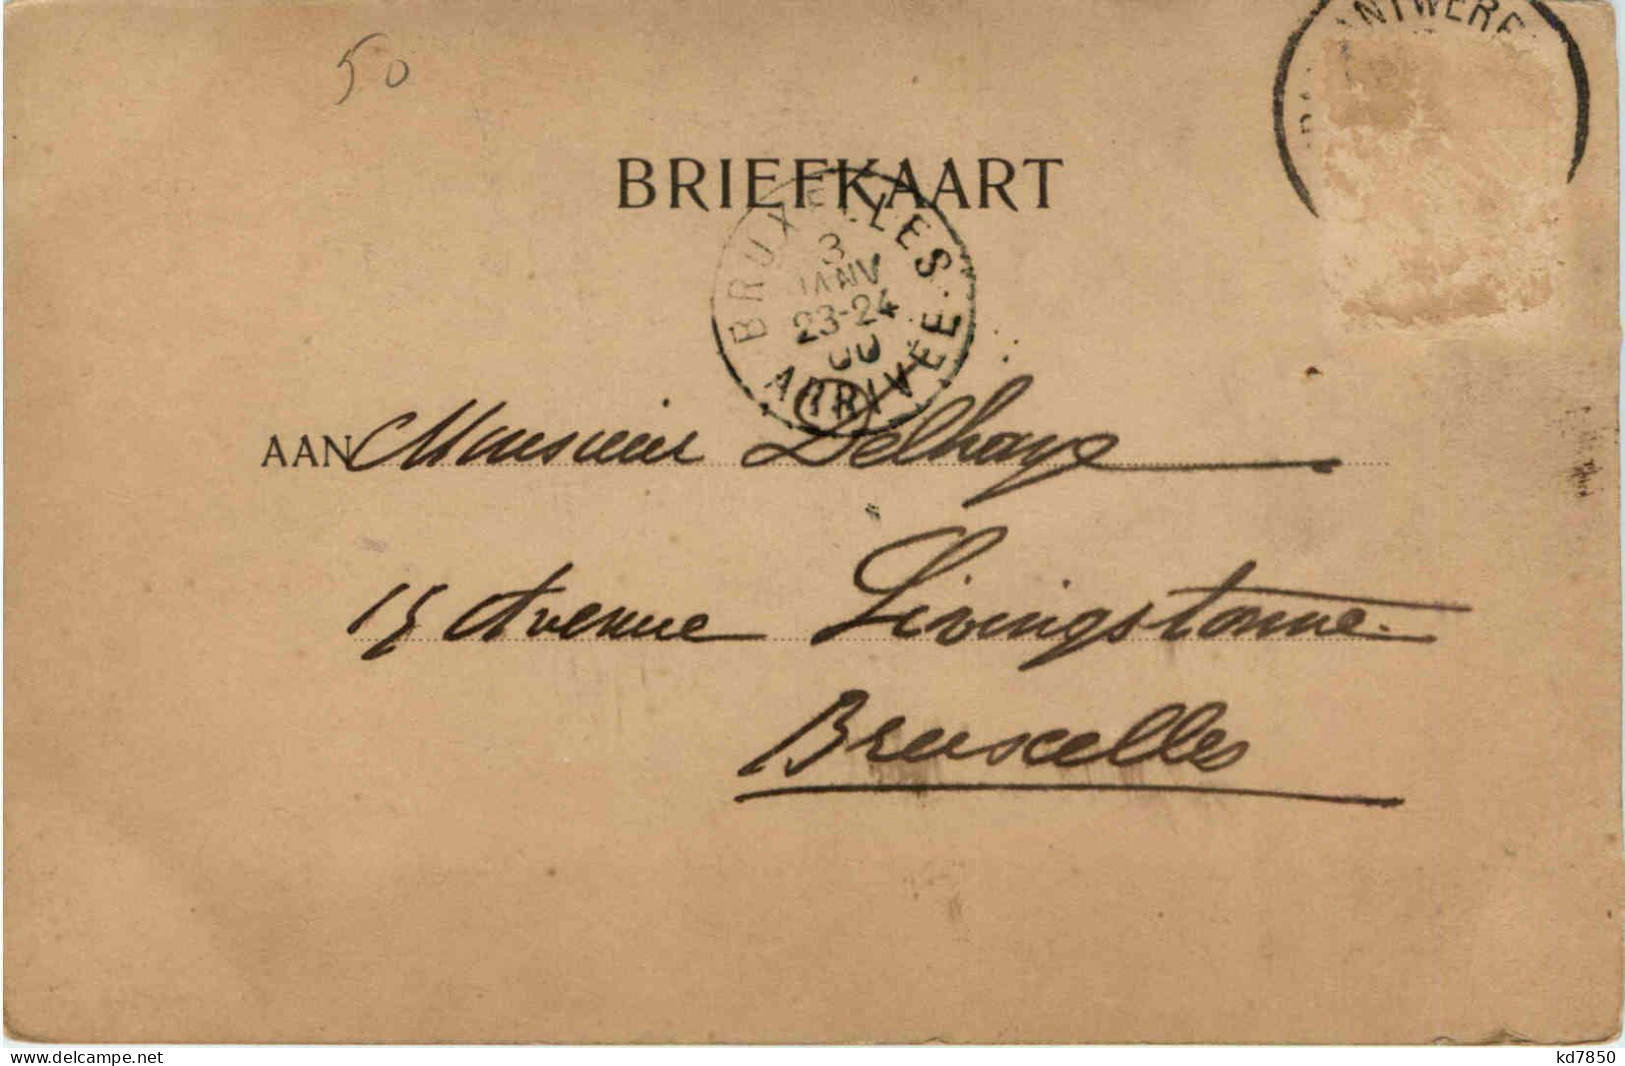 50
ANTWERP
BRIEFKAART
BRUXELLES
3
JANV
23-24
00
ARRIVÉE
AAN Monsieur Delhaye
15 Avenue Livingstonne
Bruxelles
www.delcampe.net
kd7850